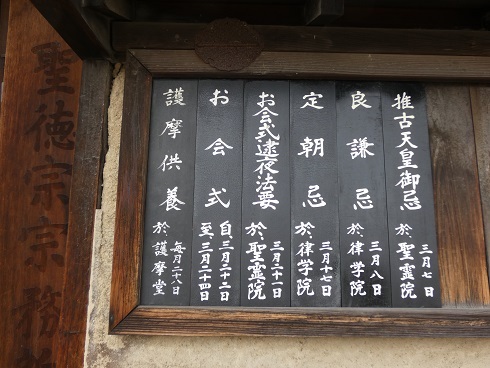 推古天皇御忌 三月七日 於、聖霊院
良謙忌 三月八日 於、律学院
定朝忌 三月十七日 於、律学院
お会式逮夜法要 三月二十一日 於、聖霊院
お会式 自、三月二十二日 至、三月二十四日
護摩供養 毎月二十八日 於護摩堂
聖徳宗宗務